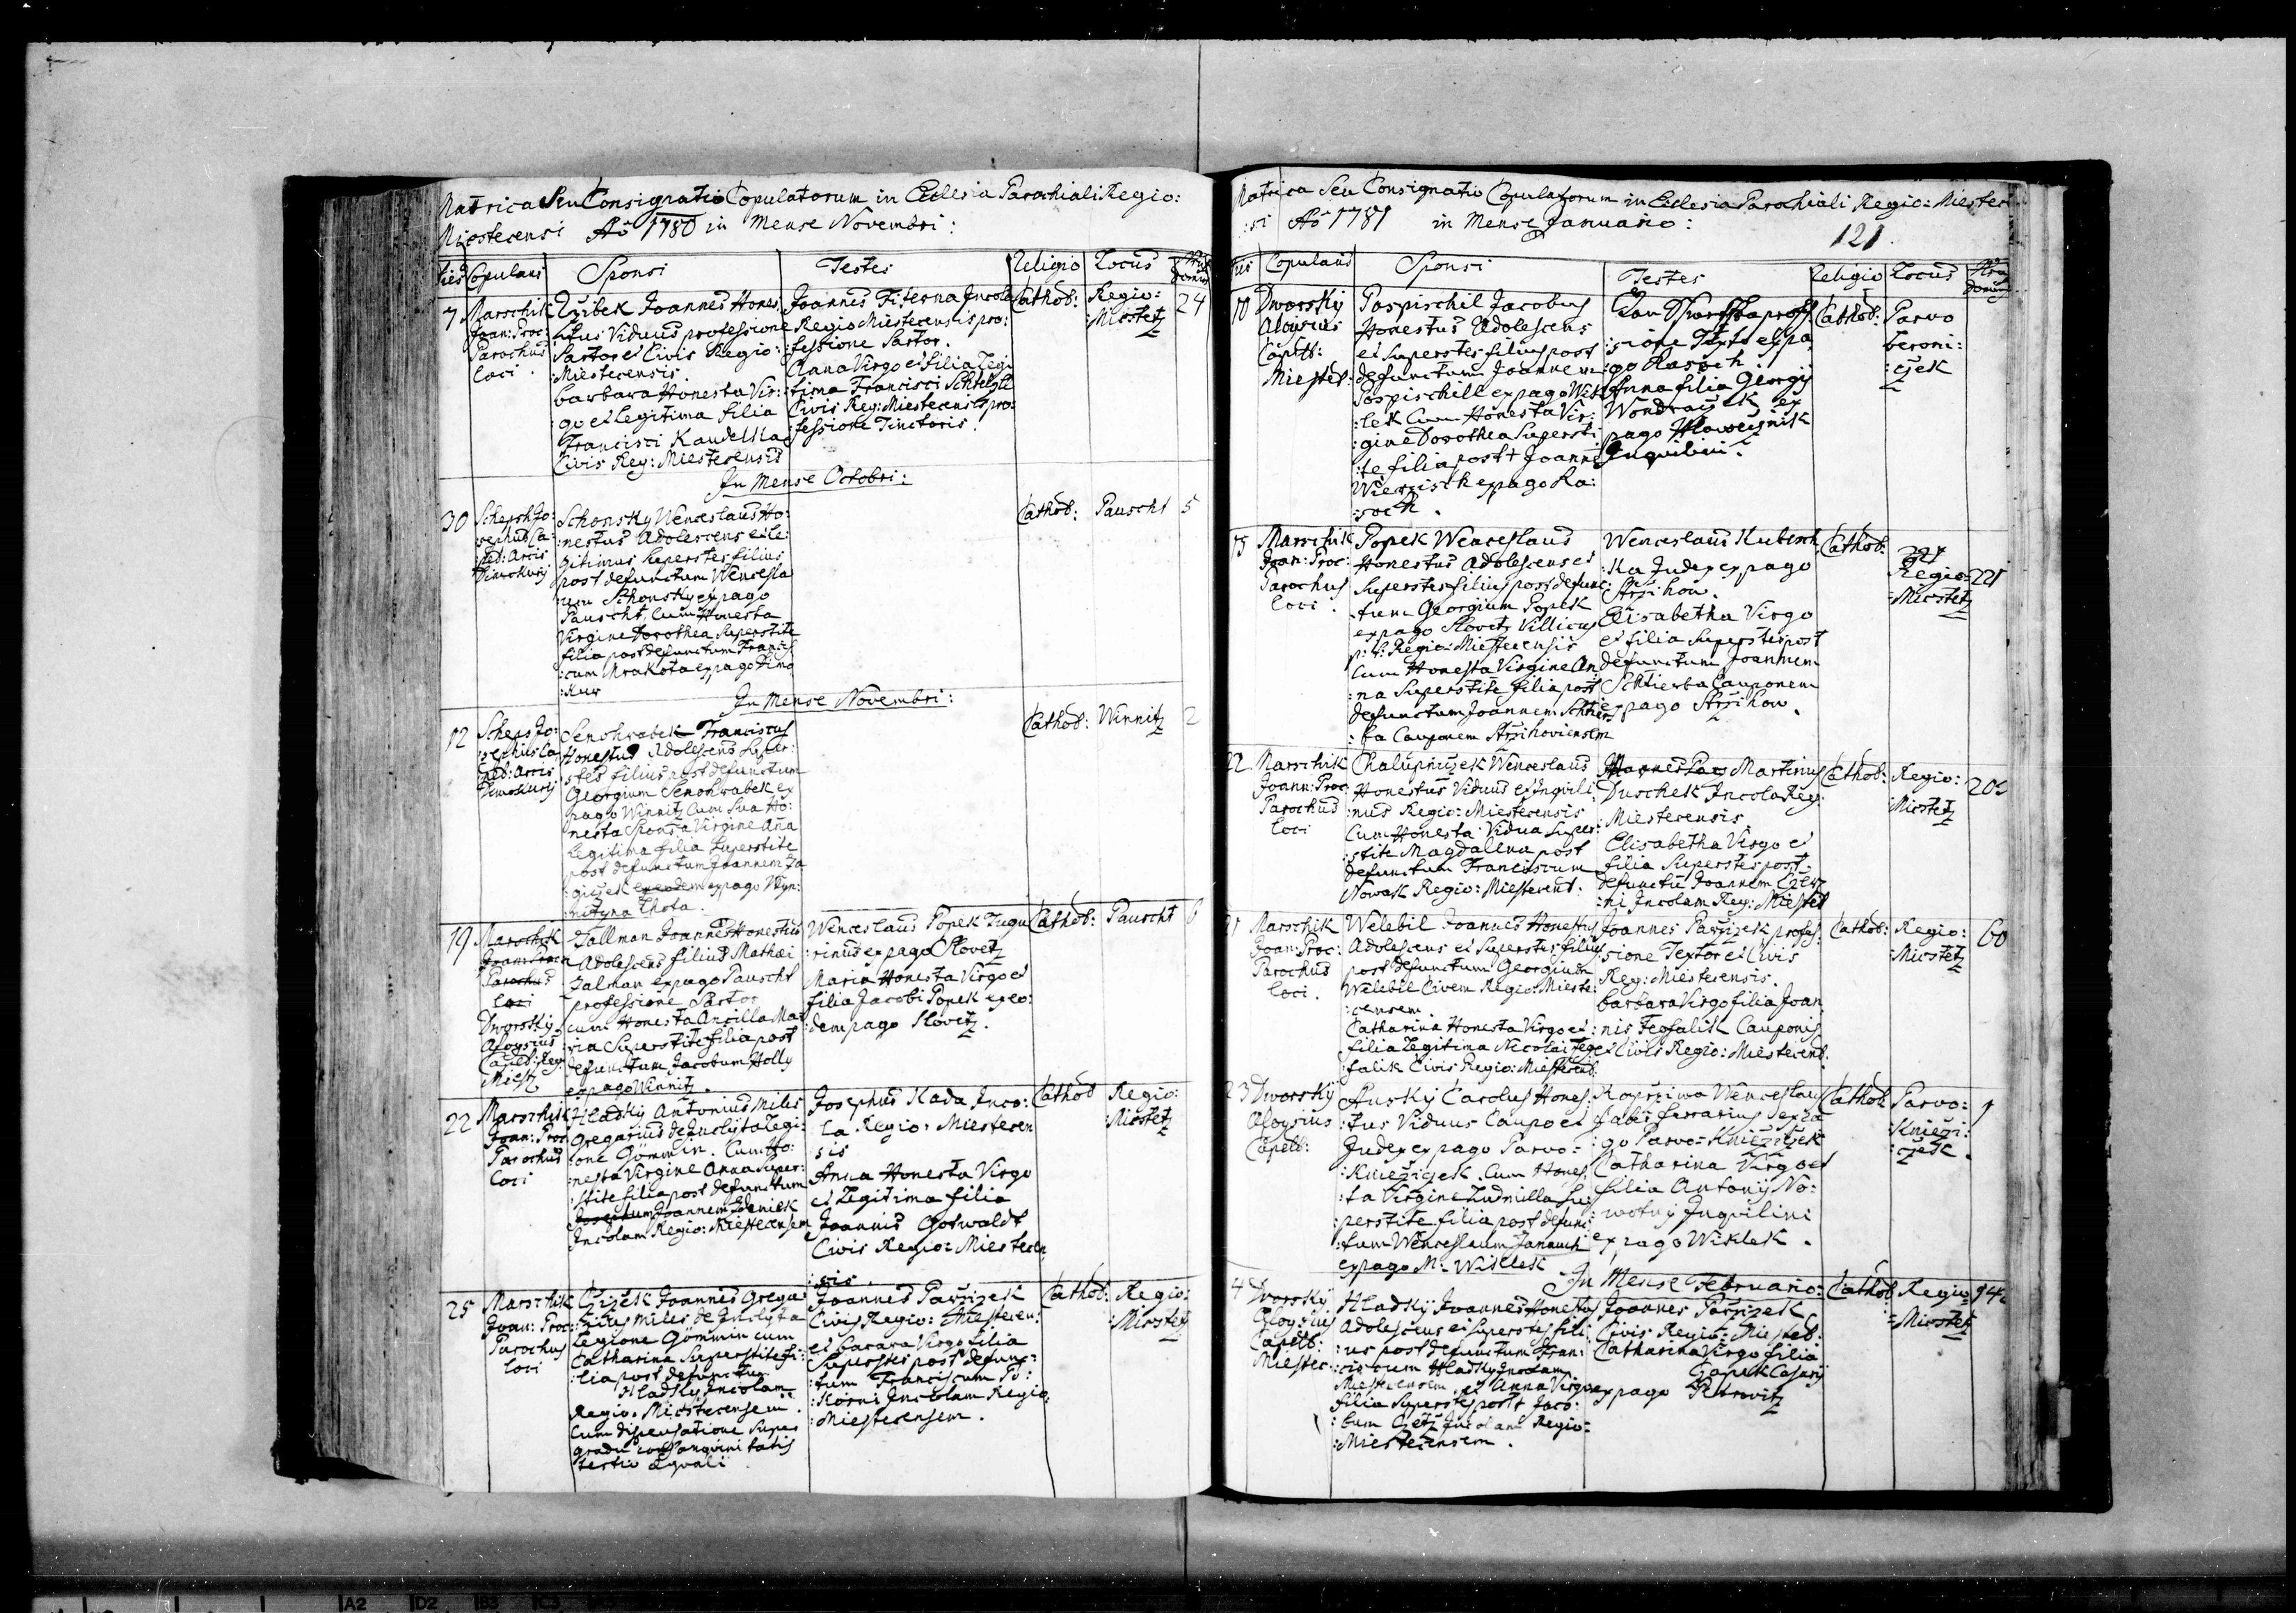 Matrica Seu Consignatio Copulatorum in Eclesia Parochiali Regio:
Miestecensi Aō 1780 in Mense Novembri:
Dies Copulans Sponsi Testes Religio Locus Domus
7
Marschik
Joan: Proc:
Parochus
loci.
Joannes Hones
tus Viduus professione
Sartor et Civis Regio:
:Miestecensis.
barbara Honesta Vir:
:go et legitima filia
Francisci Kaudelka
Civis Reg: Miestecensis
Joannes Fiterna Incola
Regio Miestecensis pro:
:fessione Sartor.
Anna Virgo et filia Legi
:tima Francisci
Civis Reg: Miestecensis pro:
:fessione Tinctoris.
Cathol:
Regio:
:Miestetz
24
In Mense Octobri:
30
Schonsky Wenceslaus Ho:
:nestus Adolescens et Le:
gitimus Superstes filius
post defunctum Wencesla
:um Schonsky ex pago
Pauscht, Cum Honesta
Virgine Dorothea Superstite
filia post defunctum Francis
:cum Mrakota ex pago Dimo
:kur
Cathol:
Pauscht
5
In Mense Novembri:
12
Senohrabek Franciscus
Honestus Adolescens Super:
:stes filius post defunctum
Georgium Senohrabek ex
pago Winnitz Cum Sua Ho:
nesta Sponsa Virgine Ana
Legitima filia Superstite
post defunctum Joannem
ex pago
Lhota.
Cathol:
Winnitz
2
19
Marschik
Joan: Proc:
Parochus
loci
Dworsky
Aloysius
Capel: Reg:
Miest
Joannes Honestus
Adolescens filius Mathæi
Salman ex pago Pauscht
professione Sartor
cum Honesta Ancilla Ma:
:ria Superstite filia post
defunctum Jacobum Holly
ex pago Winnitz.
Wenceslaus Popek
:rinus ex pago Slovetz
Maria Honesta Virgo et
filia Jacobi Popek ex eo:
:dem pago Slovetz.
Cathol:
Pauscht
6
22
Marschik
Joan: Proc:
Parochus
loci
Hladky Antonius Miles
Gregarius de Inclyta Legi:
:one Gömmin. Cum Ho:
:nesta Virgine Anna Super:
:stite filia post defunctum
Joannem Zdeniek
Incolam Regio: Miestecensem
Josephus Kada Inco:
:la Regio: Miestecen
:sis
Anna Honesta Virgo
et Legitima filia
Joannis Gotwaldt
Civis Regio: Miestecen
:sis.
Cathol
Regio:
:Miestetz
25
Marschik
Joan: Proc:
Parochus
loci
Joannes Grega
:rius Miles de Inclyta
Legione Gömmin cum
Catharina Superstite fi:
:lia post defunctum
Hladky Incolam
Regio: Miestecensem.
Cum dispensatione Super
gradu consanguinitatis
tertio æquali
Joannes Parzizek
Civis Regio: Miestecen:
et barara Virgo filia
Superstes post defunc:
:tum Franciscum Po:
:korni Incolam Regio:
:Miestecensem.
Cathol:
Regio:
:Miestetz
Matrica Seu Consignatio Copulatorum in Eclesia Parochiali Regio: Miestec
:si Aō 1781 in Mense Januario:
121.
Copulans Sponsi Testes Religio Locus Domus
10
Dworsky
Aloysius
Capell:
Miestec:
Pospischil Jacobus
Honestus Adolescens
et Superstes filius post
defunctum Joannem
Pospischill ex pago Wik
:lek Cum Honesta Vir:
:gine Dorothea Supersti
:te filia post + Joannem
ex pago Ra:
:soch.
:sione ex pa
:go Rasoch
Anna filia Georgij
ex
pago
Inquilini.
Cathol:
Parvo
beroni:
:czek
15
Marschik
Joan: Proc:
Parochus
loci.
Popek Wenceslaus
Honestus Adolescens et
Superstes filius post defunc:
:tum Georgium Popek
ex pago Slovetz Villicus
p: t: Regio: Miestecensis
Cum Honesta Virgine An
:na Superstite filia post
defunctum Joannem Schtier
:ba Cauponem Strzihoviensem
Wenceslaus Kubesch
:ka Judex ex pago
Strzihow.
Elisabetha Virgo
et filia Superstes post
defunctum Joannem
Schtierba Cauponem
ex pago Strzihow.
Cathol:
Regio:
:Miestetz
221
22
Marschik
Joann: Proc:
Parochus
loci
Chalupniczek Wenceslaus
Honestus Viduus et Inquili
:nus Regio: Miestecensis
Cum Honesta Vidua Super:
:stite Magdalena post
defunctum Franciscum
Nowak Regio: Miestecens:
Martinus
Duschek Incola Reg:
:Miestecensis.
Elisabetha Virgo et
filia Superstes post
defunctū Joannem
Incolam Reg: Miestec
Cathol:
Regio:
:Miestetz
Marschik
Joan: Proc:
Parochus
loci.
Welebil Joannes Honestus
Adolescens et Superstes filius
post defunctum Georgium
Welebil Civem Regio: Mieste:
:censem.
Catharina Honesta Virgo et
filia Legitima Nicolai
:falik Civis Regio: Miestecens
Joannes Parzizek profes:
:sione Textor et Civis
Reg: Miestecensis.
barbara Virgo filia Joan
:nis Feofalik Cauponis
et Civis Regio: Miestecens.
Cathol:
Regio:
:Miestetz
60
23
Dworsky
Aloysius
Capell:
Carolus Hones
:tus Viduus Caupo et
Judex ex pago Parvo=
:Kniežiczek. Cum Hones
:ta Virgine Ludmilla Su
:perstite filia post defunc
:tum Wenceslaum Janauch
ex pago M: Wiklek
Koprziwa Wenceslaus
Faber ferrarius ex pa
:go Parvo=Knieziczek
Catharina Virgo et
filia Antonij No:
:wotny Inquilini
ex pago Wiklek.
Cathol:
Parvo=
:Kniezi:
:czek.
1
In Mense Februario:
4
Dworsky
Aloysius
Capell:
Miestec:
Hladky Joannes Honestus
Adolescens et Superstes fili
:us post defunctum Fran:
:ciscum Hladky Incolam
Miestecensem et Anna Virgo
filia Superstes post Jaco:
:bum Incolam Regio=
:Miestecensem.
Joannes Parzizek
Civis Regio: Miestec:
Catharina Virgo filia
ex pago Petrowitz
Cathol
Regio
=Miestetz